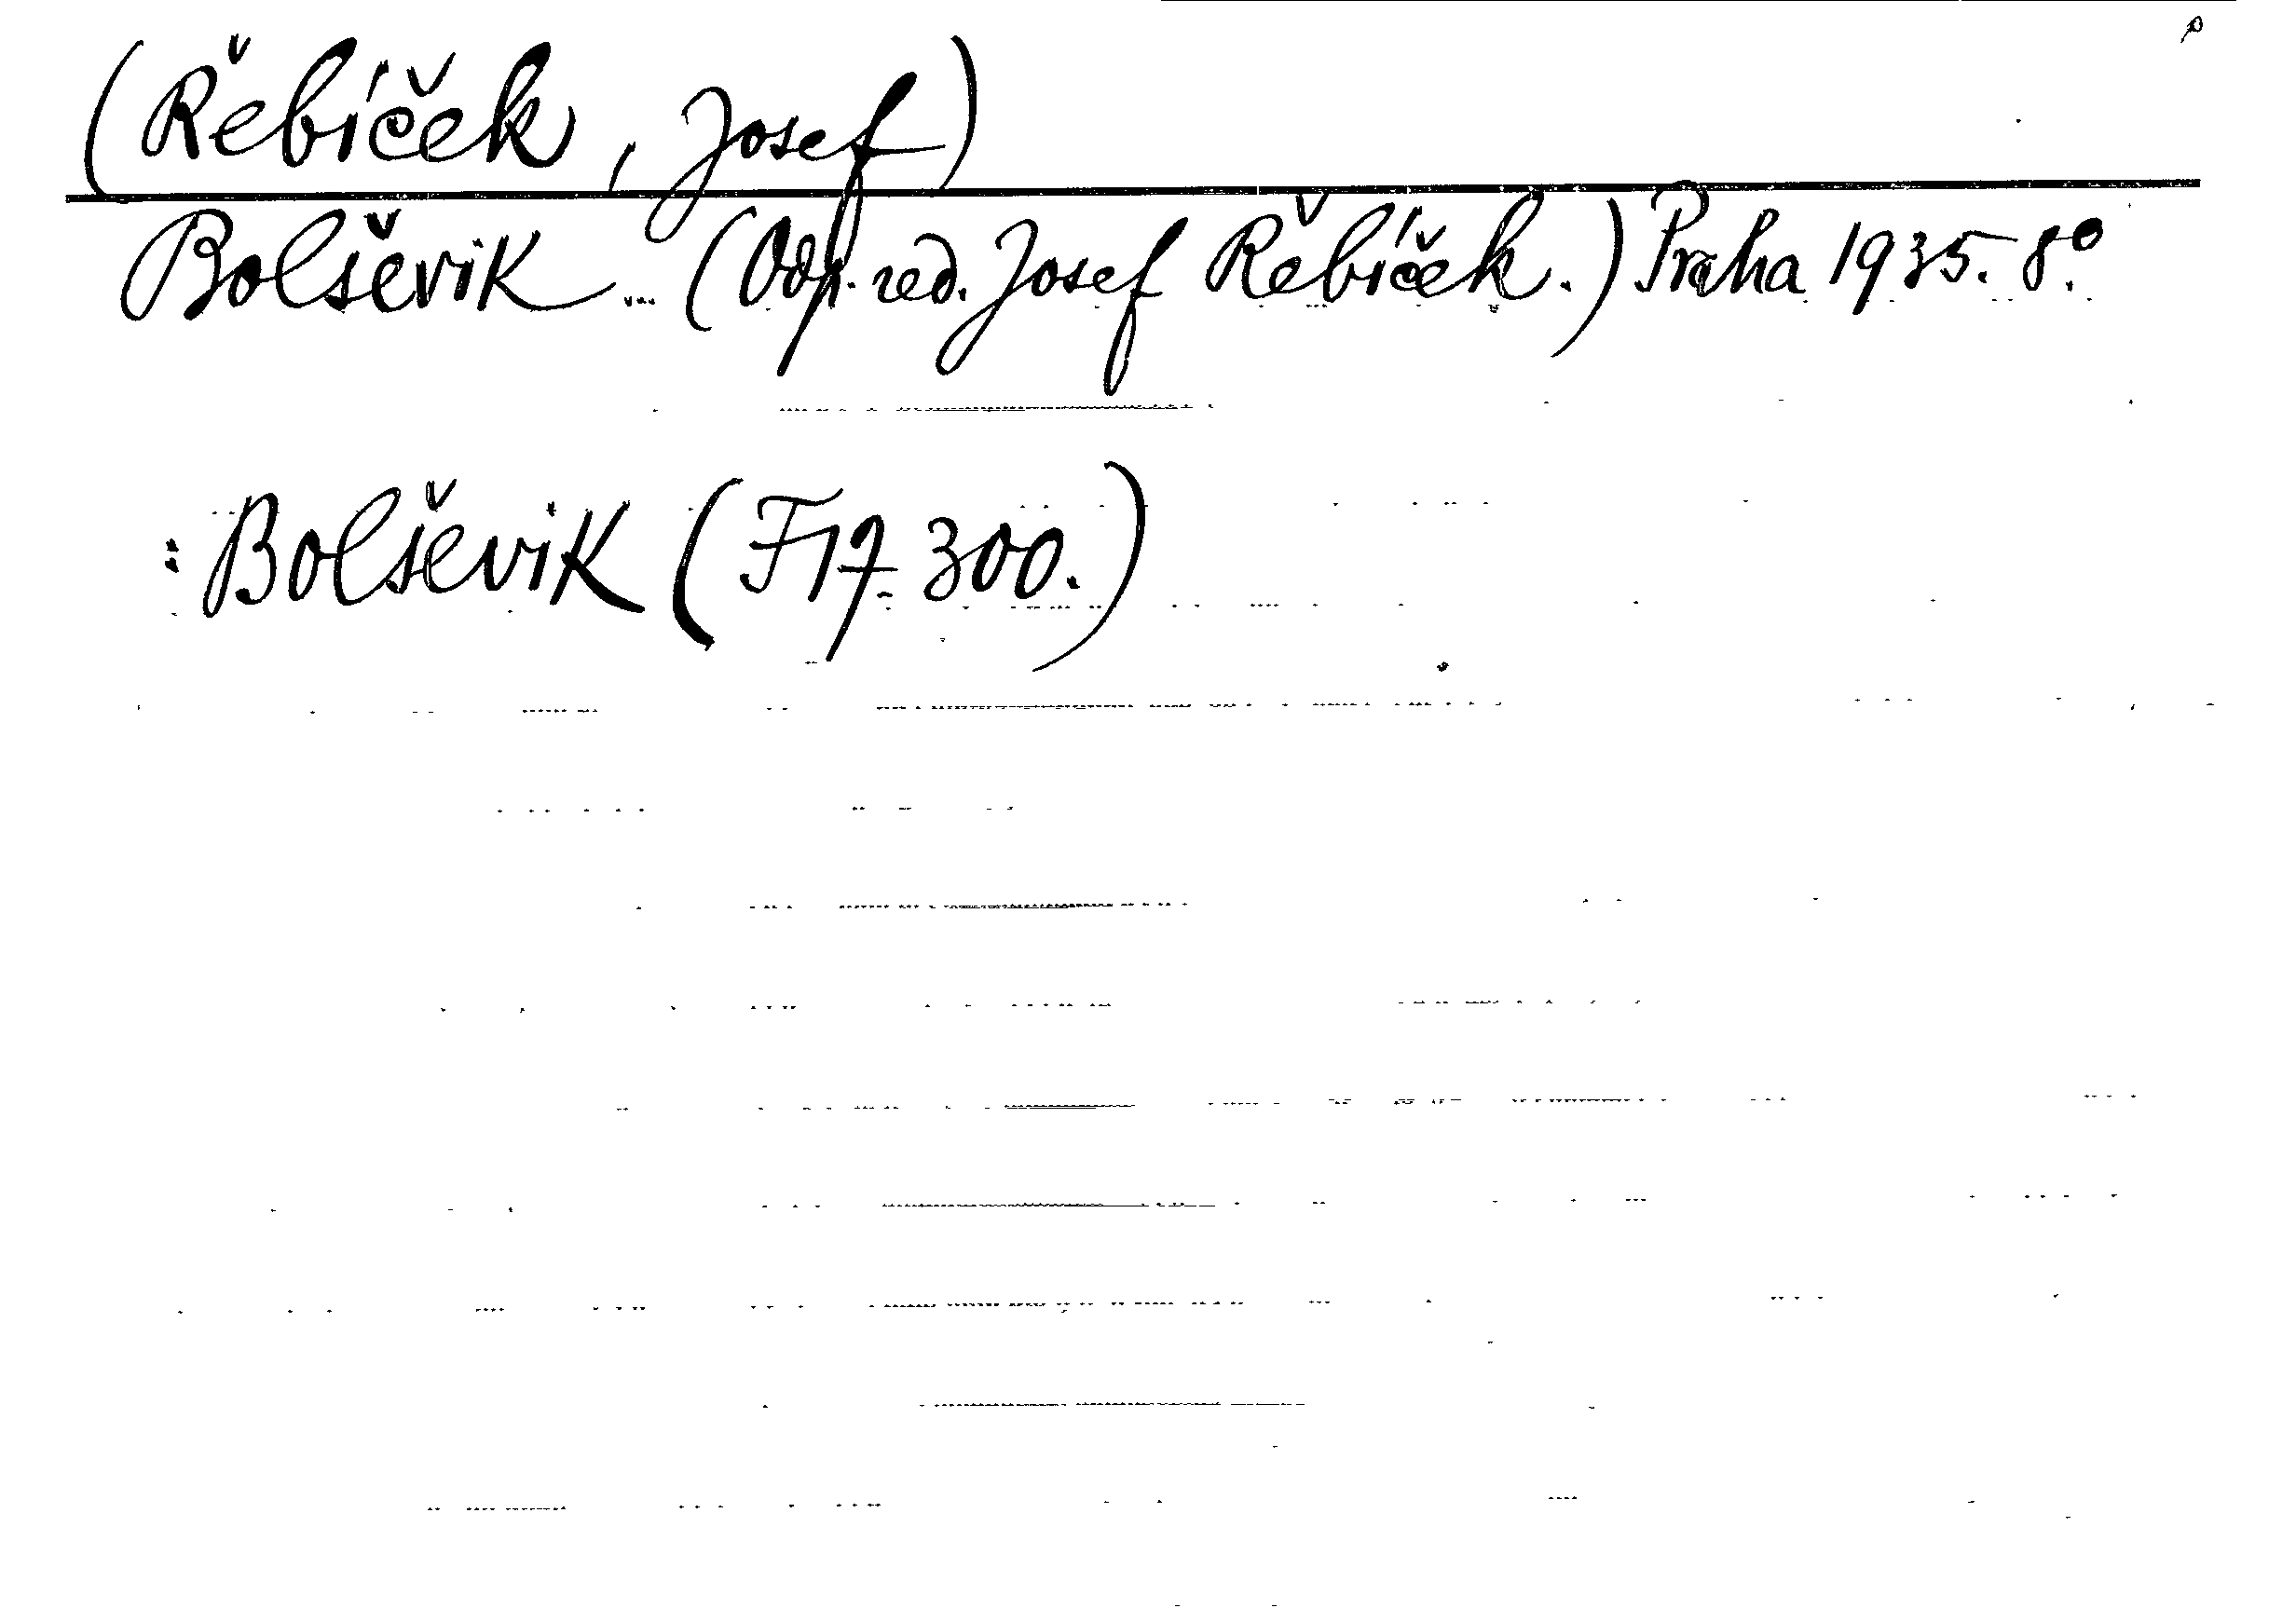 (Řebíček, Josef)
Bolševik... (Odp. red. Josef Řebíček.) Praha 1935. 8°.
: Bolševik (F 17 300.)